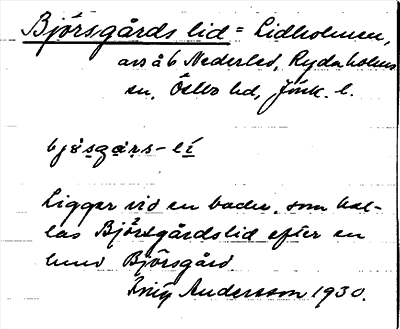 Björsgårds lid = Lidholmen,
avs å 6 Nederled, Rydaholms
sn, Östbo hd, Jönk. l.
bjösgårs-lí
Ligger vid en backe, som kal-
las Björsgårdslid efter en
lund Björsgård.
Andersson 1930.